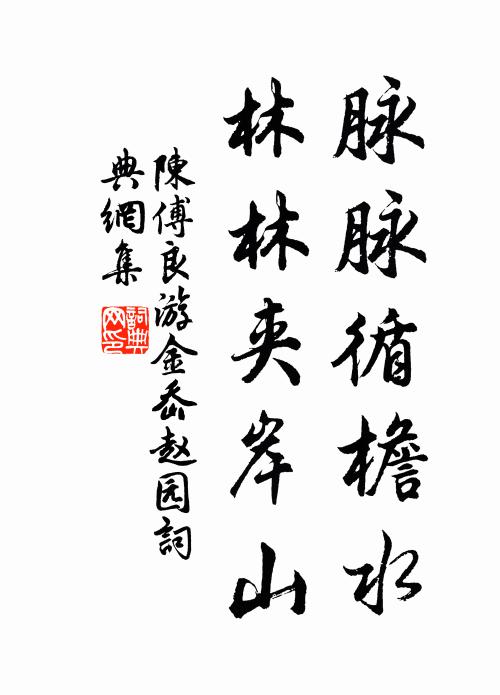 脉脉循檐水
林林夹岸山
陳傅良游金岙赵园詞
典網集
詞典网印